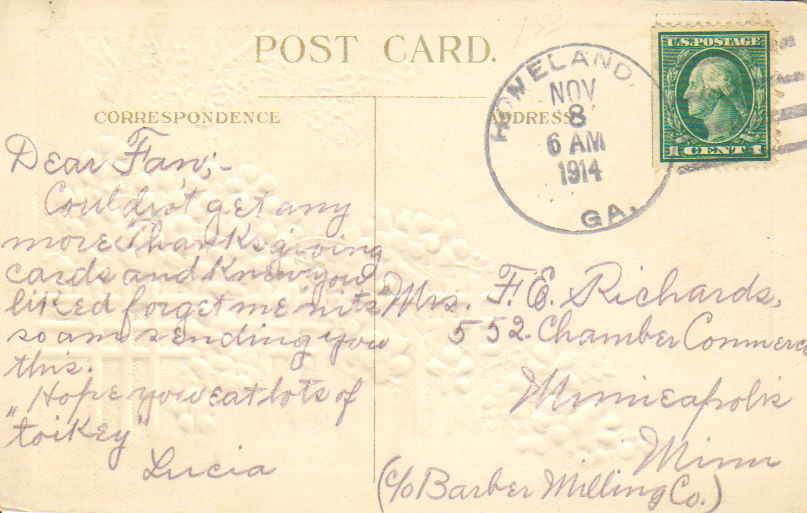 POST CARD.
CORRESPONDENCE
ADDRESS
HOMELAND,
NOV
8
6 AM
1914
GA.
U.S. POSTAGE
1 CENT 1
Dear Fan;-
Couldn't get any
more Thanksgiving
cards and knew you
liked forget me nots
so am sending you
this.
Hope you eat lots of
"toikey"
Lucia
Mrs. F. E. Richards,
552 Chamber Commerce
Minneapolis
Minn
(c/o Barber Milling Co.)